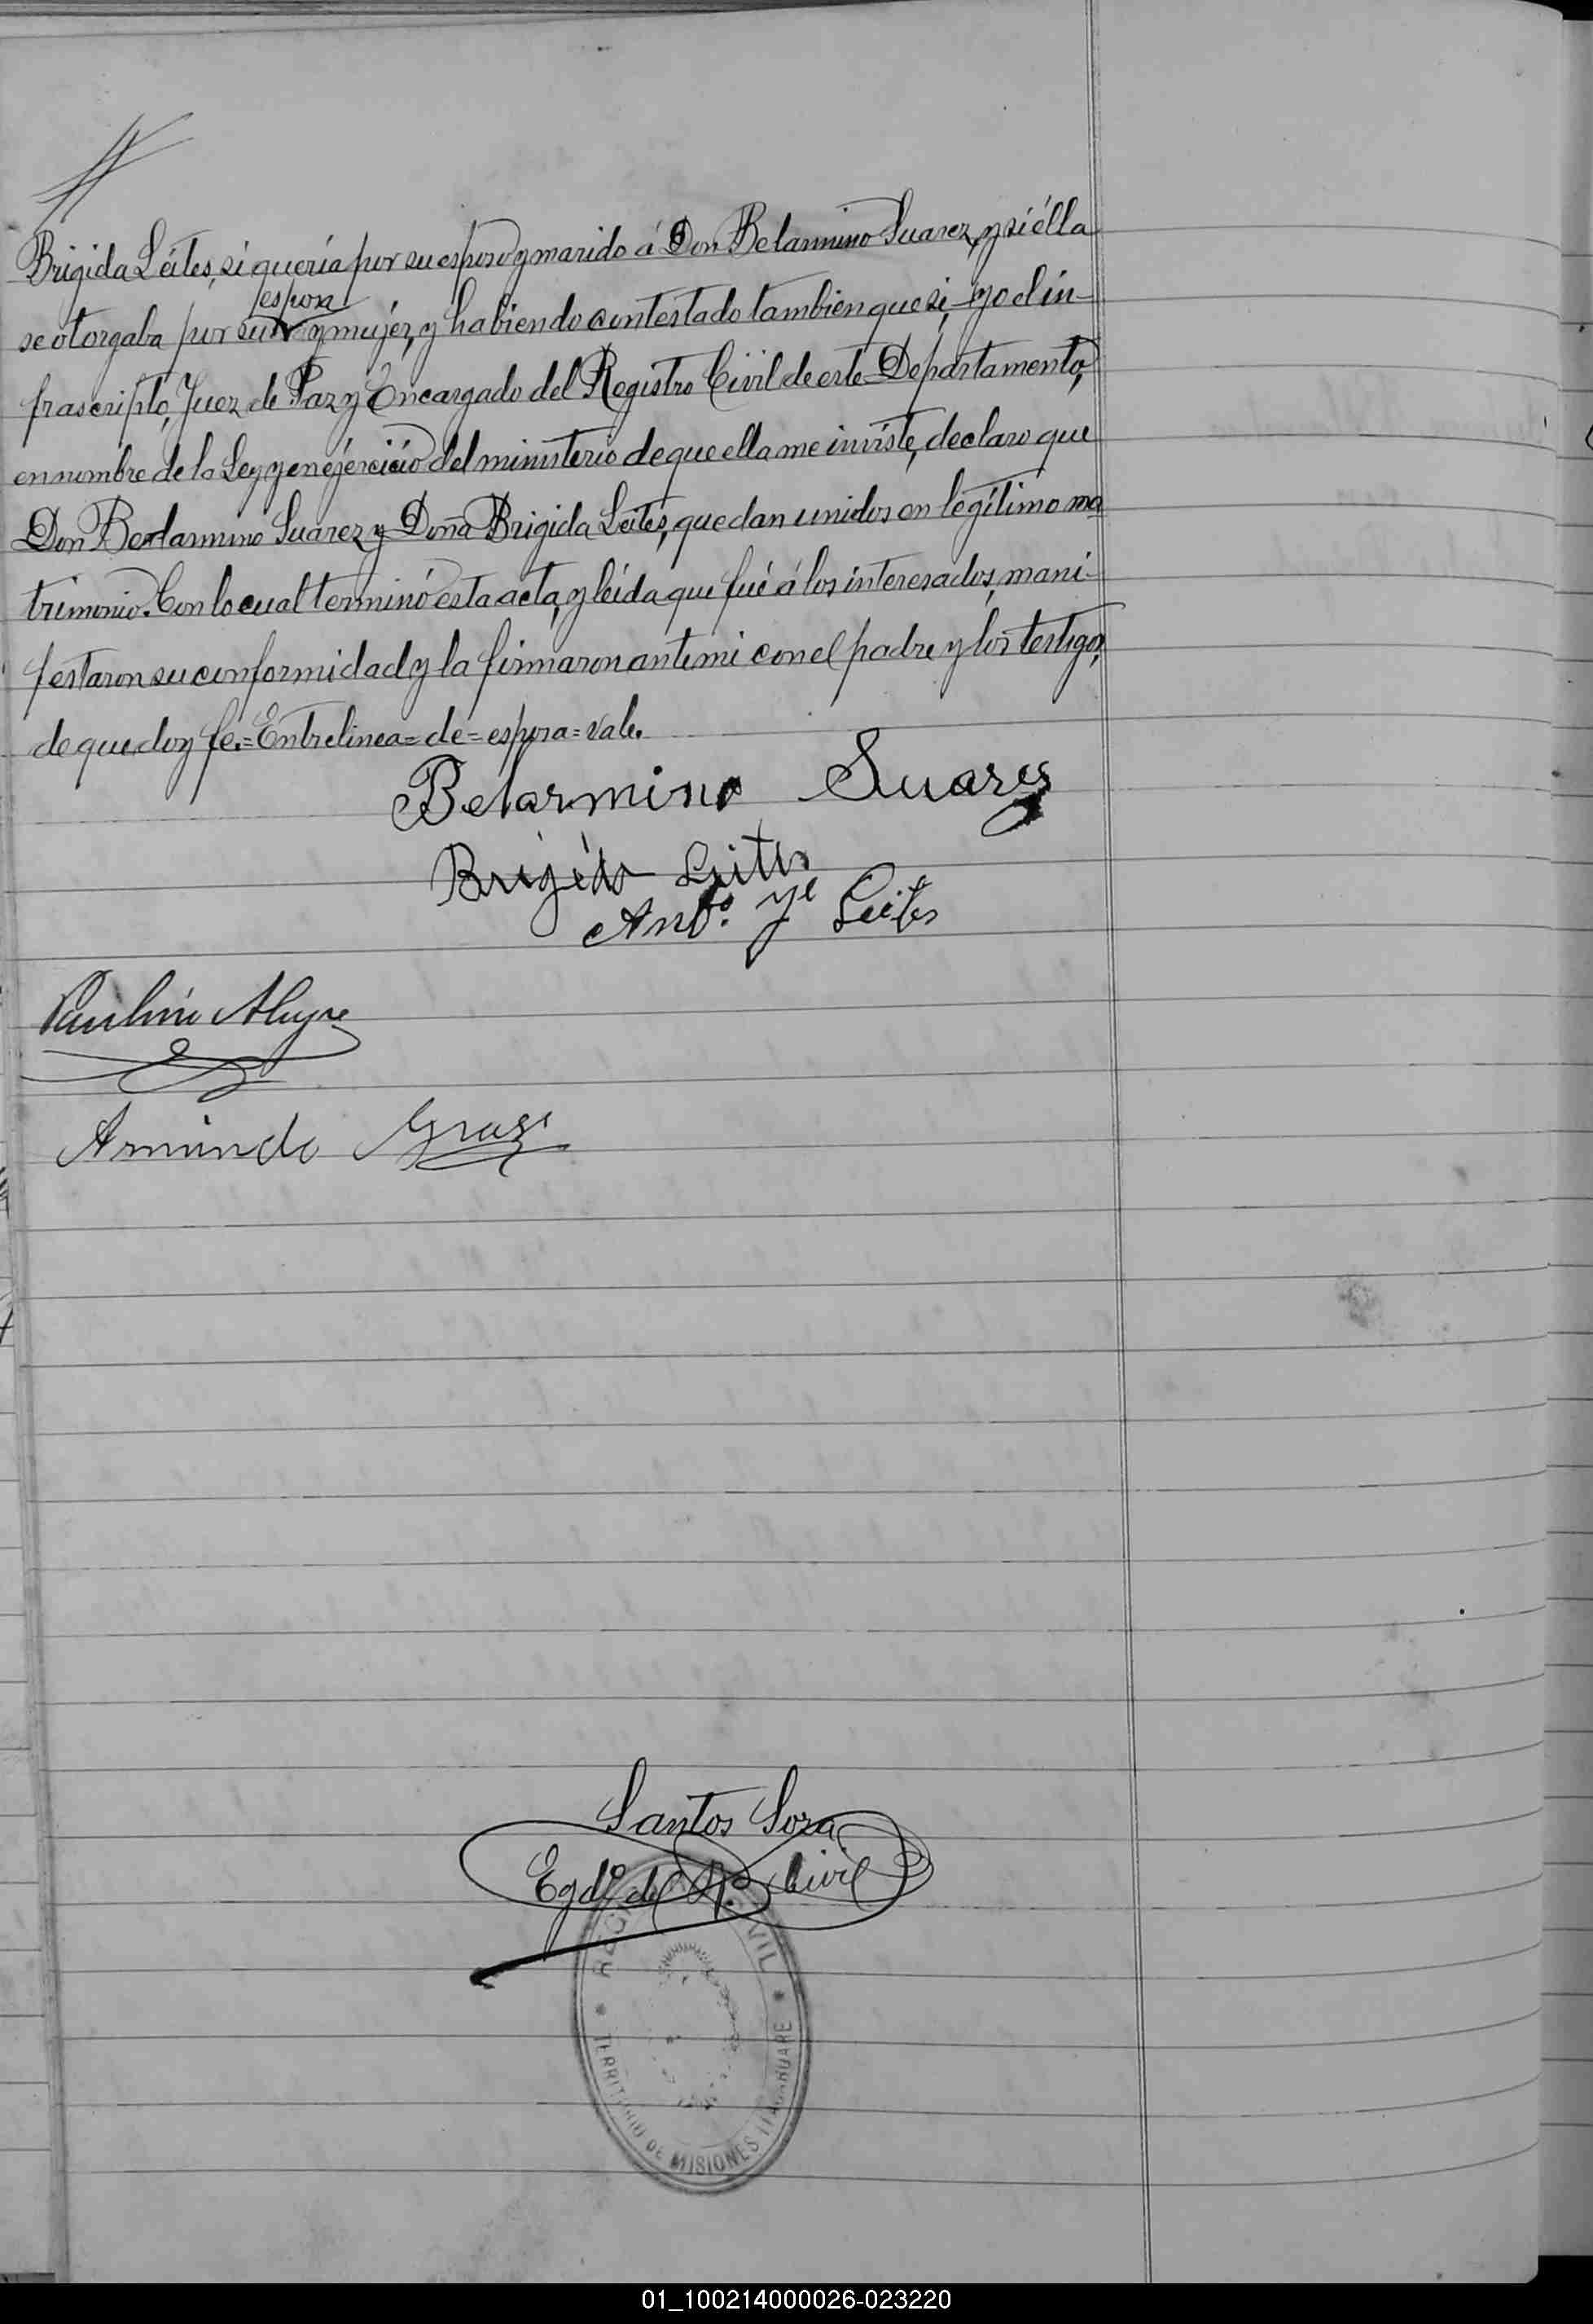 Brigida Leites, si quería por su esposo y marido á Don Belarmino Suarez, y si élla
esposa
se otorgaba por su y mujer, y habiendo contestado tambien que si,- yo el in-
frascripto, Juez de Paz y Encargado del Registro Civil de este Departamento,
en nombre de la Ley y en ejercicio del ministerio de que ella me inviste, declaro que
Don Berlarmino Suarez y Doña Brigida Leites, quedan unidos en legítimo ma
trimonio. Con lo cual terminó esta acta, y leida que fué á los interesados, mani-
festaron su conformidad y la firmaron ante mi con el padre y los testigos,
de que doy fé.=Entrelinea=de=esposa=vale.
Belarmino Suares
Brigida Leites
Anto. Leites
Paulino Alegre
Armindo
Santos Soza
Egdo. del R. Civil
REGISTRO CIVIL
TERRITORIO DE MISIONES ITACARUARE
01_100214000026-023220